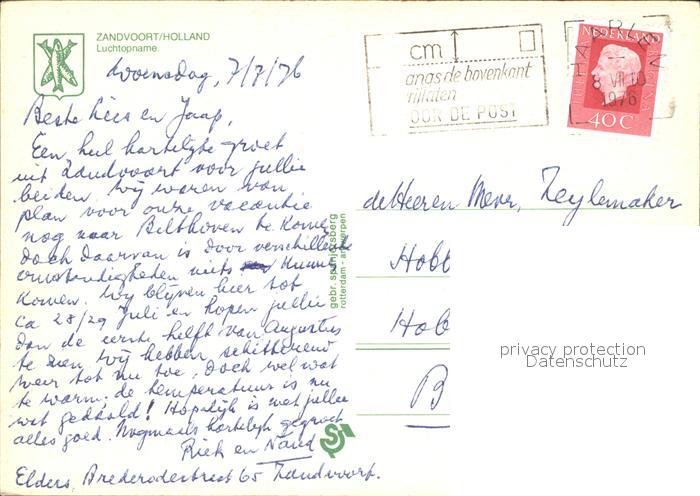 ZANDVOORT/HOLLAND
Luchtopname
Woensdag, 7/7/76
Beste Kees en Jaap,
Een heel hartelijke groet
uit Zandvoort voor jullie
beiden. Wij waren van
plan voor onze vacantie
nog naar Bilthoven te komen
doch daarvan is door verschillende
omstandigheden niets kunnen
komen. Wij blijven hier tot
ca 28/29 Juli en hopen jullie
dan de eerste helft van Augustus
te zien. Wij hebben schitterend
weer tot nu toe, doch wel wat
te warm; de temperatuur is nu
wat gedaald! Hopelijk is met jullie
alles goed. Nogmaals hartelijk gegroet
Riek en
Elders, Brederodestraat 65 Zandvoort.
gebr. spanjersberg
rotterdam - antwerpen
cm
anaf de bovenkant
DOOR DE POST
HAARLEM
8 VII
1976
NEDERLAND
40 C
de Heeren Mever, Zeylemaker
Hobb
Hob
B
privacy protection
Datenschutz